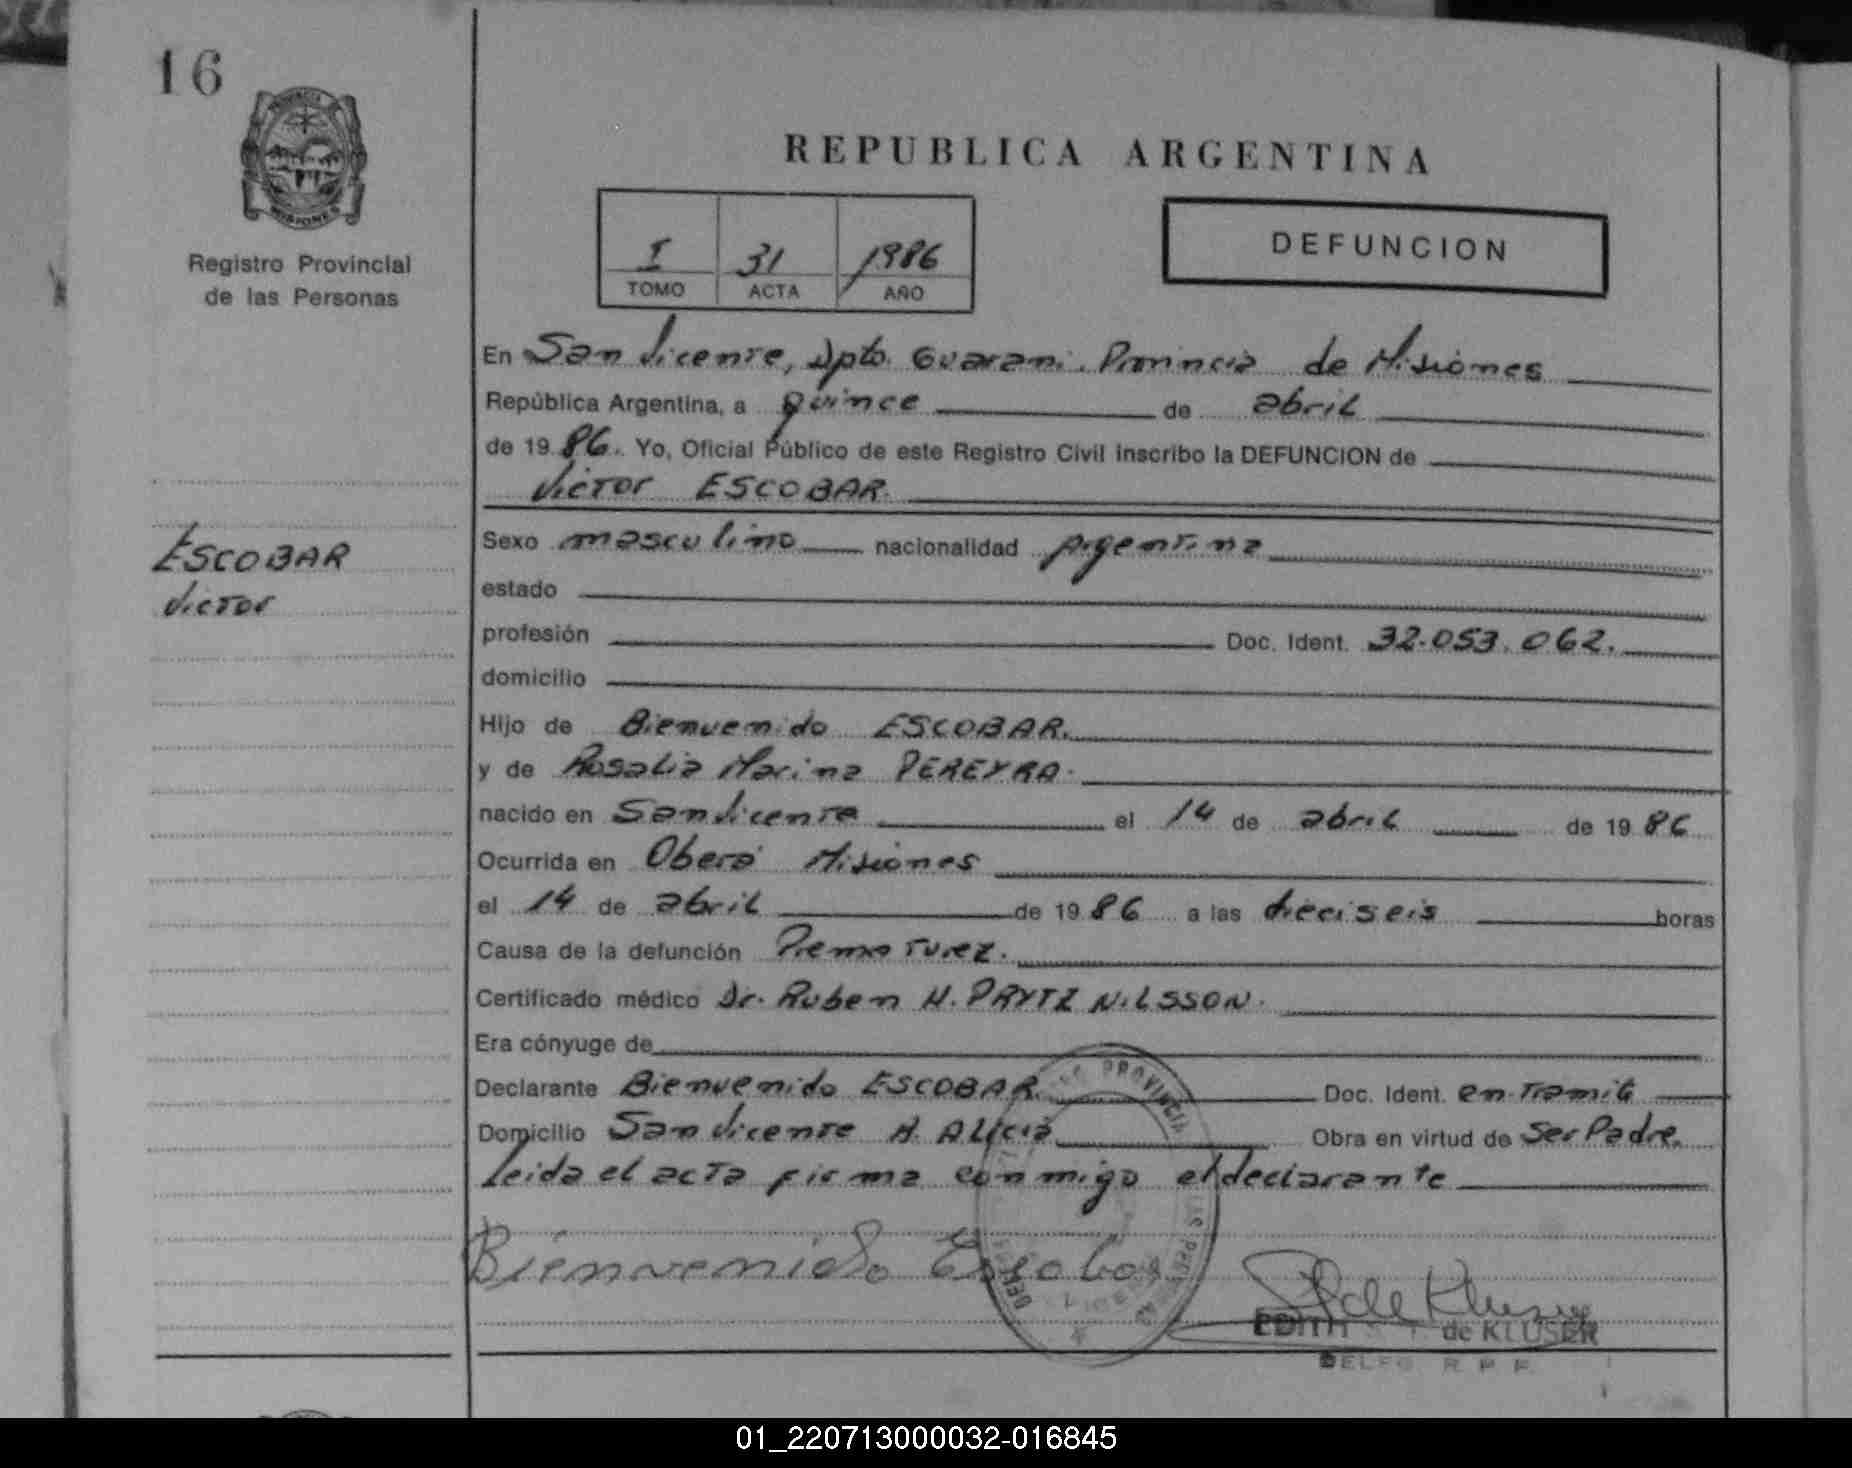 16
PROVINCIA DE
MISIONES
Registro Provincial
de las Personas
REPUBLICA ARGENTINA
I 31 1986
TOMO ACTA AÑO
DEFUNCION
En San Vicente, Dpto. Guarani. Provincia de Misiones
República Argentina, a quince de abril
de 1986. Yo, Oficial Público de este Registro Civil inscribo la DEFUNCION de
Victor ESCOBAR.
ESCOBAR
Victor
Sexo masculino nacionalidad Argentina
estado
profesión Doc. Ident. 32.053.062.
domicilio
Hijo de Bienvenido ESCOBAR.
y de Rosalia Marina PEREYRA.
nacido en San Vicente el 14 de abril de 1986
Ocurrida en Oberá Misiones
el 14 de abril de 1986 a las dieciseis horas
Causa de la defunción Prematurez.
Certificado médico Dr. Ruben H. PRYTZ NILSSON.
Era cónyuge de
Declarante Bienvenido ESCOBAR. Doc. Ident. en tramite
Domicilio San Vicente H. ALicia Obra en virtud de Ser Padre.
Leida el acta firma conmigo el declarante
Bienvenido Escobar
EDITH de KLUSER
DELEG. R. P. P.
01_220713000032-016845